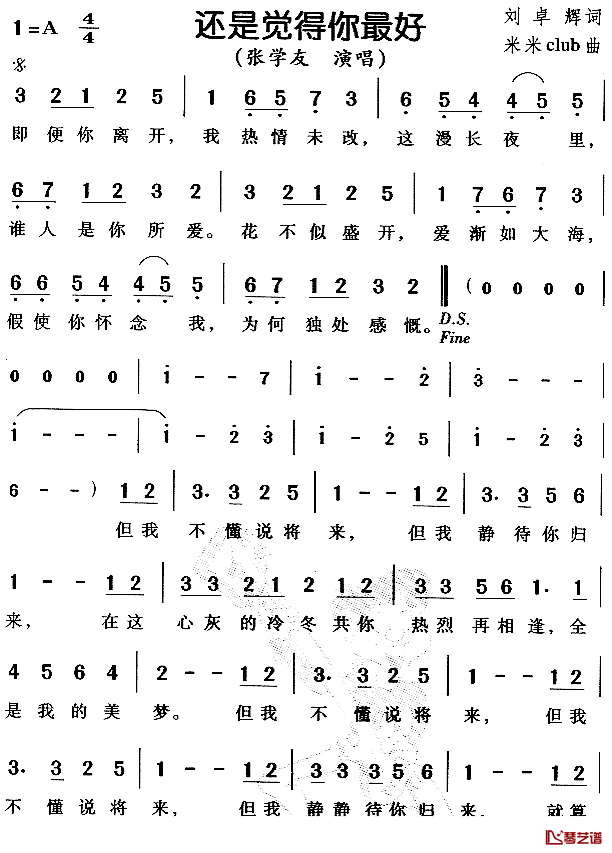 1=A 4/4 还是觉得你最好 刘卓辉词
(张学友 演唱) 米米club曲
3 2 1 2 5 | 1 6 5 7 3 | 6 5 4 4 5 5 |
即便你离开，我热情未改，这漫长夜里，
6 7 1 2 3 2 | 3 2 1 2 5 | 1 7 6 7 3 |
谁人是你所爱。花不似盛开，爱渐如大海，
6 6 5 4 4 5 5 | 6 7 1 2 3 2 ‖ (0 0 0 0 |
假使你怀念我，为何独处感慨。D.S.
Fine
0 0 0 0 | i - - 7 | i - - 2 | 3 - - - |
i - - - | i - 2 3 | i - 2 5 | i - 2 3 |
6 - -) 1 2 | 3. 3 2 5 | 1 - - 1 2 | 3. 3 5 6 |
但我不懂说将来，但我静待你归
1 - - 1 2 | 3 3 2 1 2 1 2 | 3 3 5 6 1. 1 |
来，在这心灰的冷冬共你热烈再相逢，全
4 5 6 4 | 2 - - 1 2 | 3. 3 2 5 | 1 - - 1 2 |
是我的美梦。但我不懂说将来，但我
3. 3 2 5 | 1 - - 1 2 | 3 3 3 5 6 | 1 - - 1 2 |
不懂说将来，但我静静待你归来，就算
琴艺谱